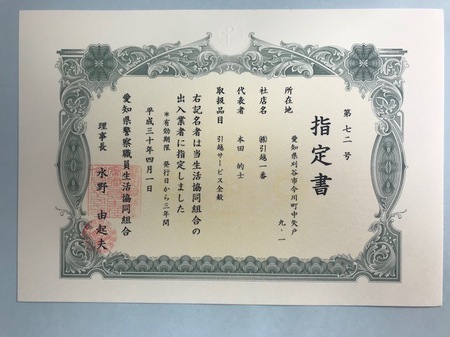 第七二号
指定書
所在地 愛知県刈谷市今川町中矢戸九‐一
社店名 ㈱引越一番
代表者 本田 的士
取扱品目 引越サービス全般
右記名者は当生活協同組合の
出入業者に指定しました
※有効期限 発行日から三年間
平成三十年四月一日
愛知県警察職員生活協同組合
理事長 水野 由起夫